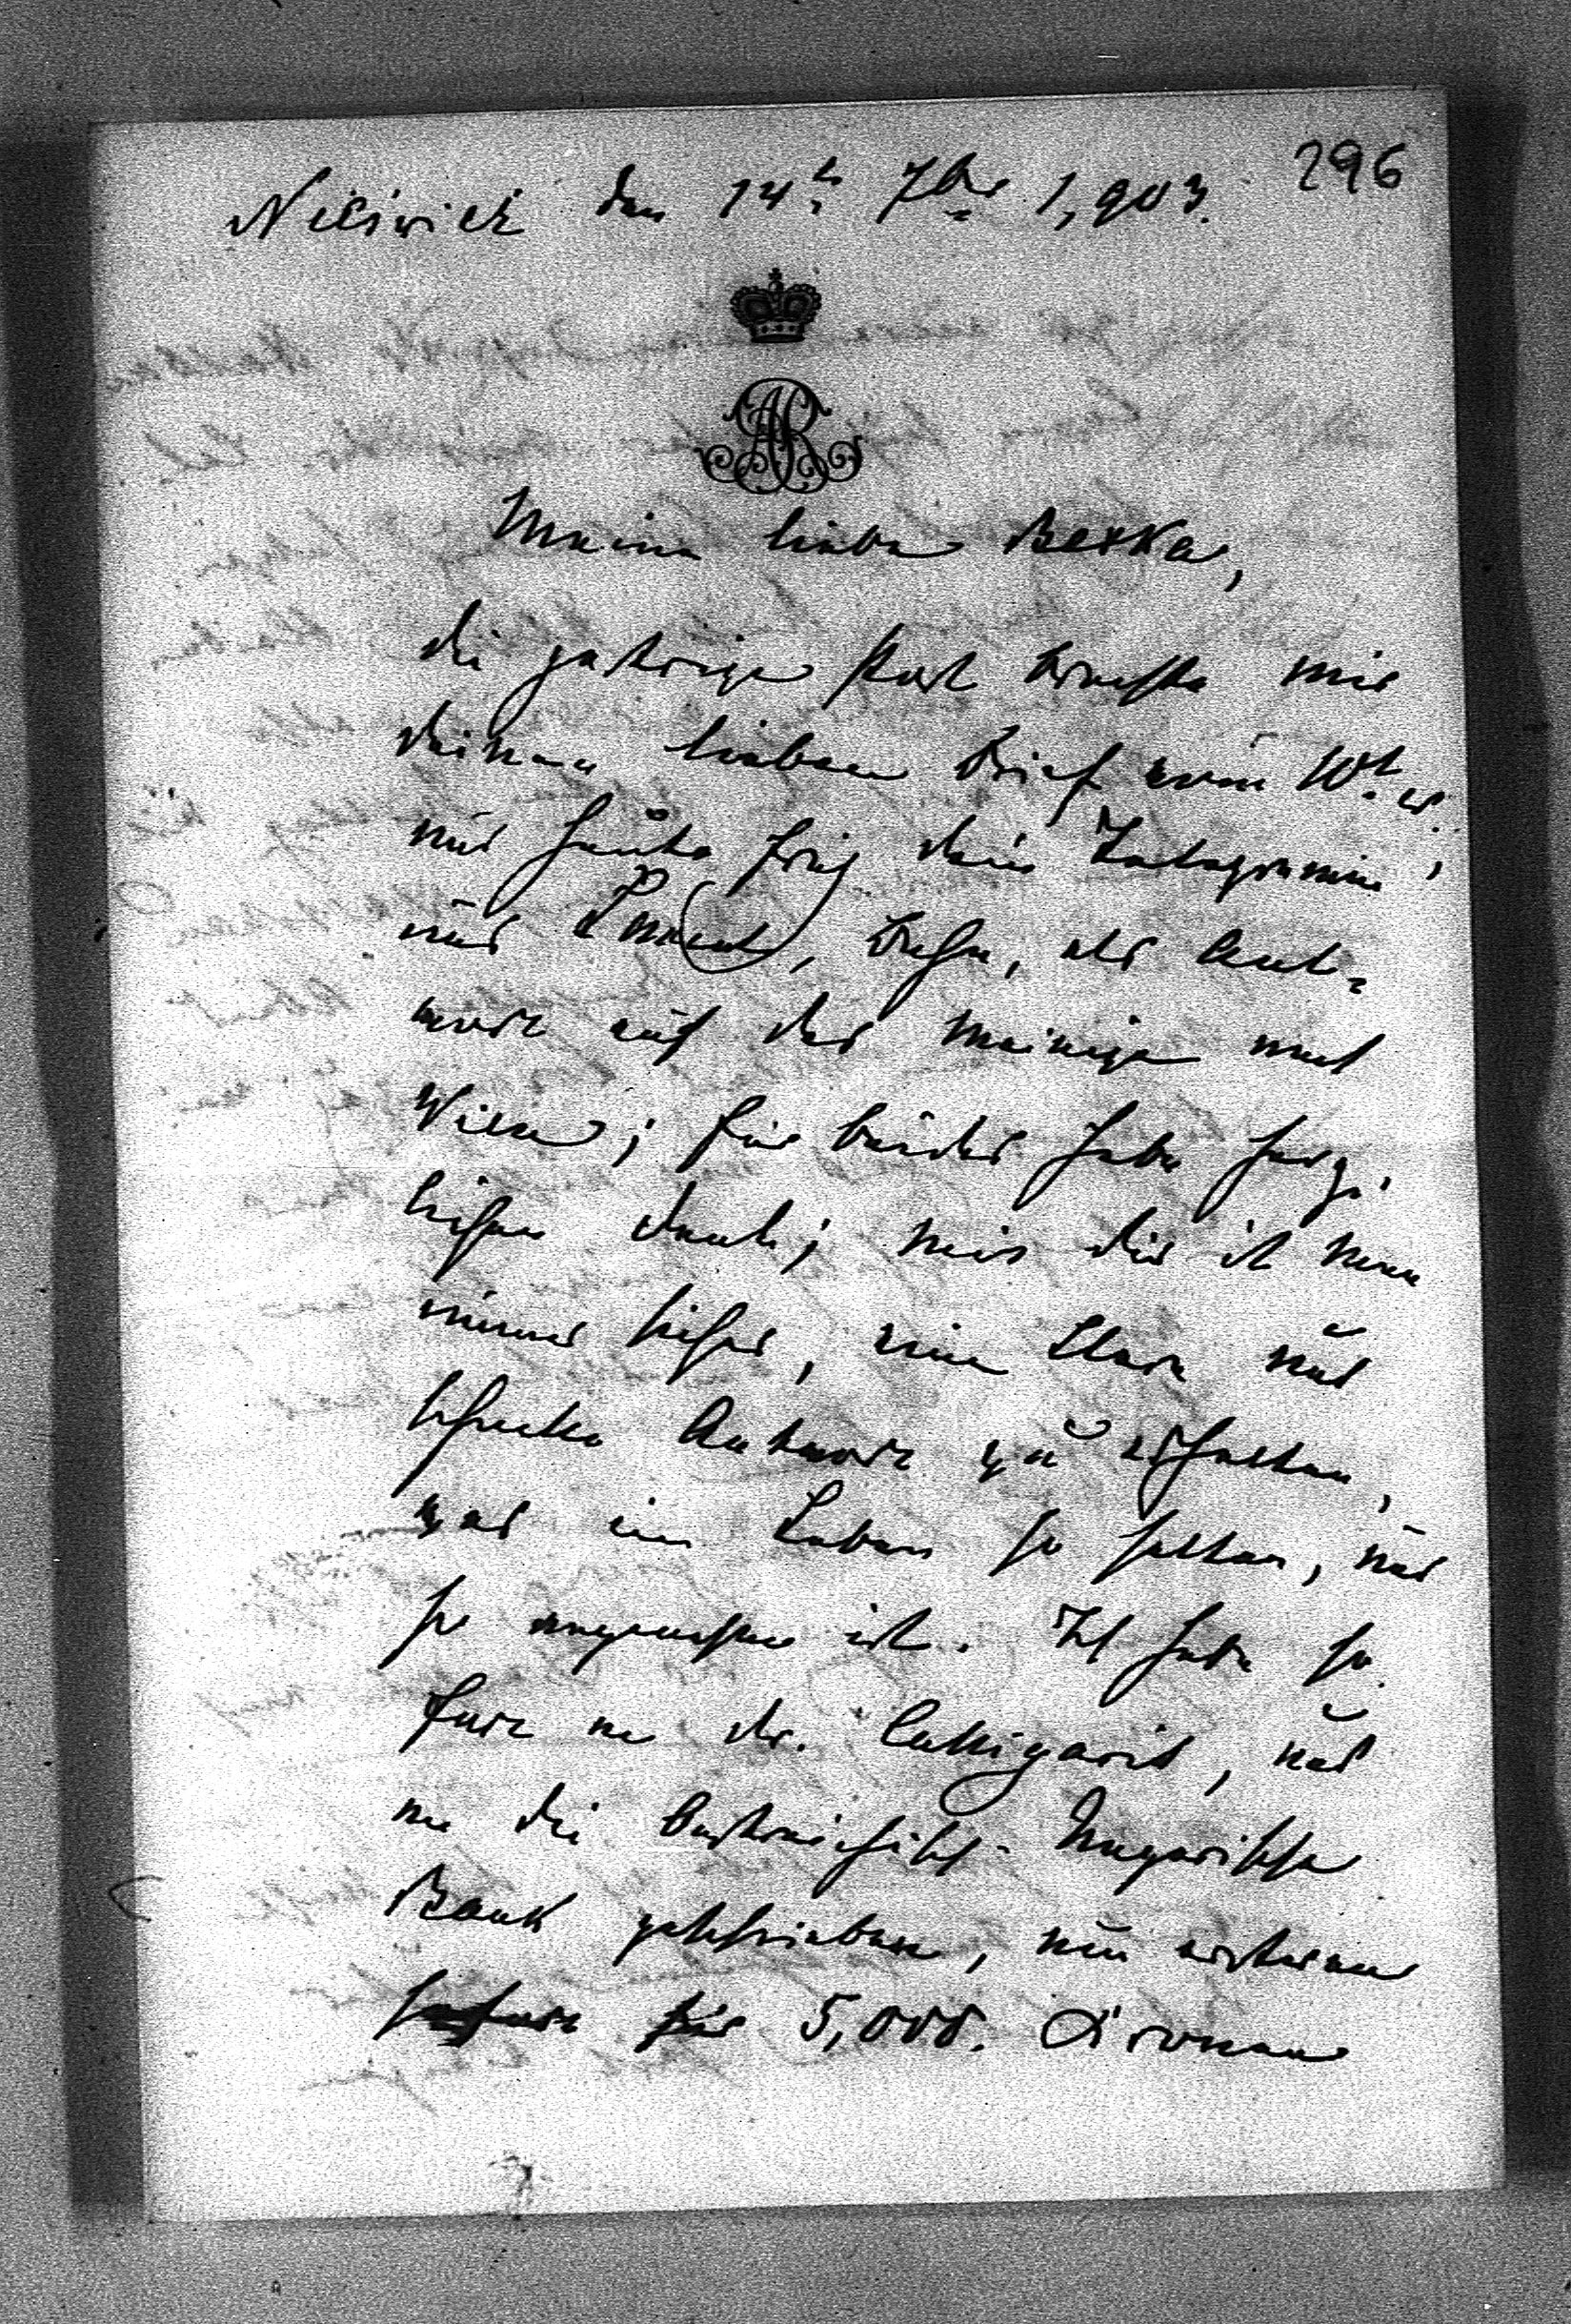 296
Nieswiek den 14t 7bre 1,903.
AR
Meine liebe Bexka,
die gestrige Post brachte mir
deinen lieben Brief vom 10t. d.
und heute früh dein Telegramm
aus, als Ant=
wort auf das meinige nach
Wien; für beides habe herz-
lichen Dank; mir dir ist man
immer sicher, eine klare und
schnelle Antwort zu erhalten,
was im Leben so selten, und
so angenehm ist. Ich habe so
fort an dr. Calligaris, und
an die Oestreichisch-Ungarische
Bank geschrieben, um ersteren
sofort für 5,000. Kronen